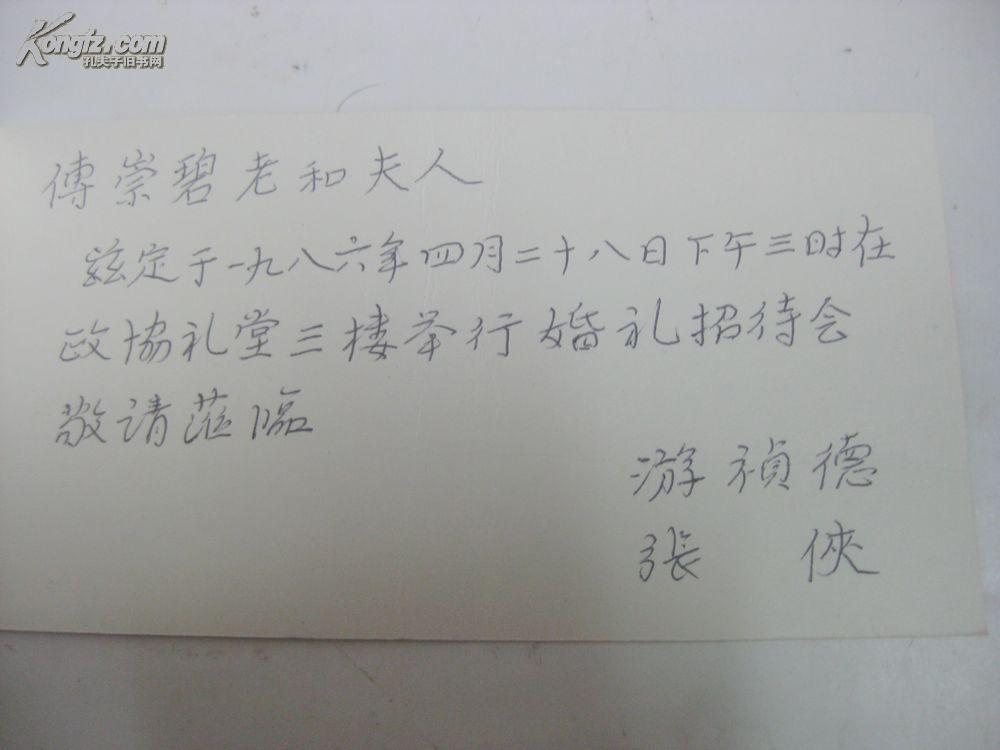 Kongfz.com
孔夫子旧书网
傅崇碧老和夫人
兹定于一九八六年四月二十八日下午三时在
政協礼堂三楼举行婚礼招待会
敬请蒞臨
游禎德
張俠